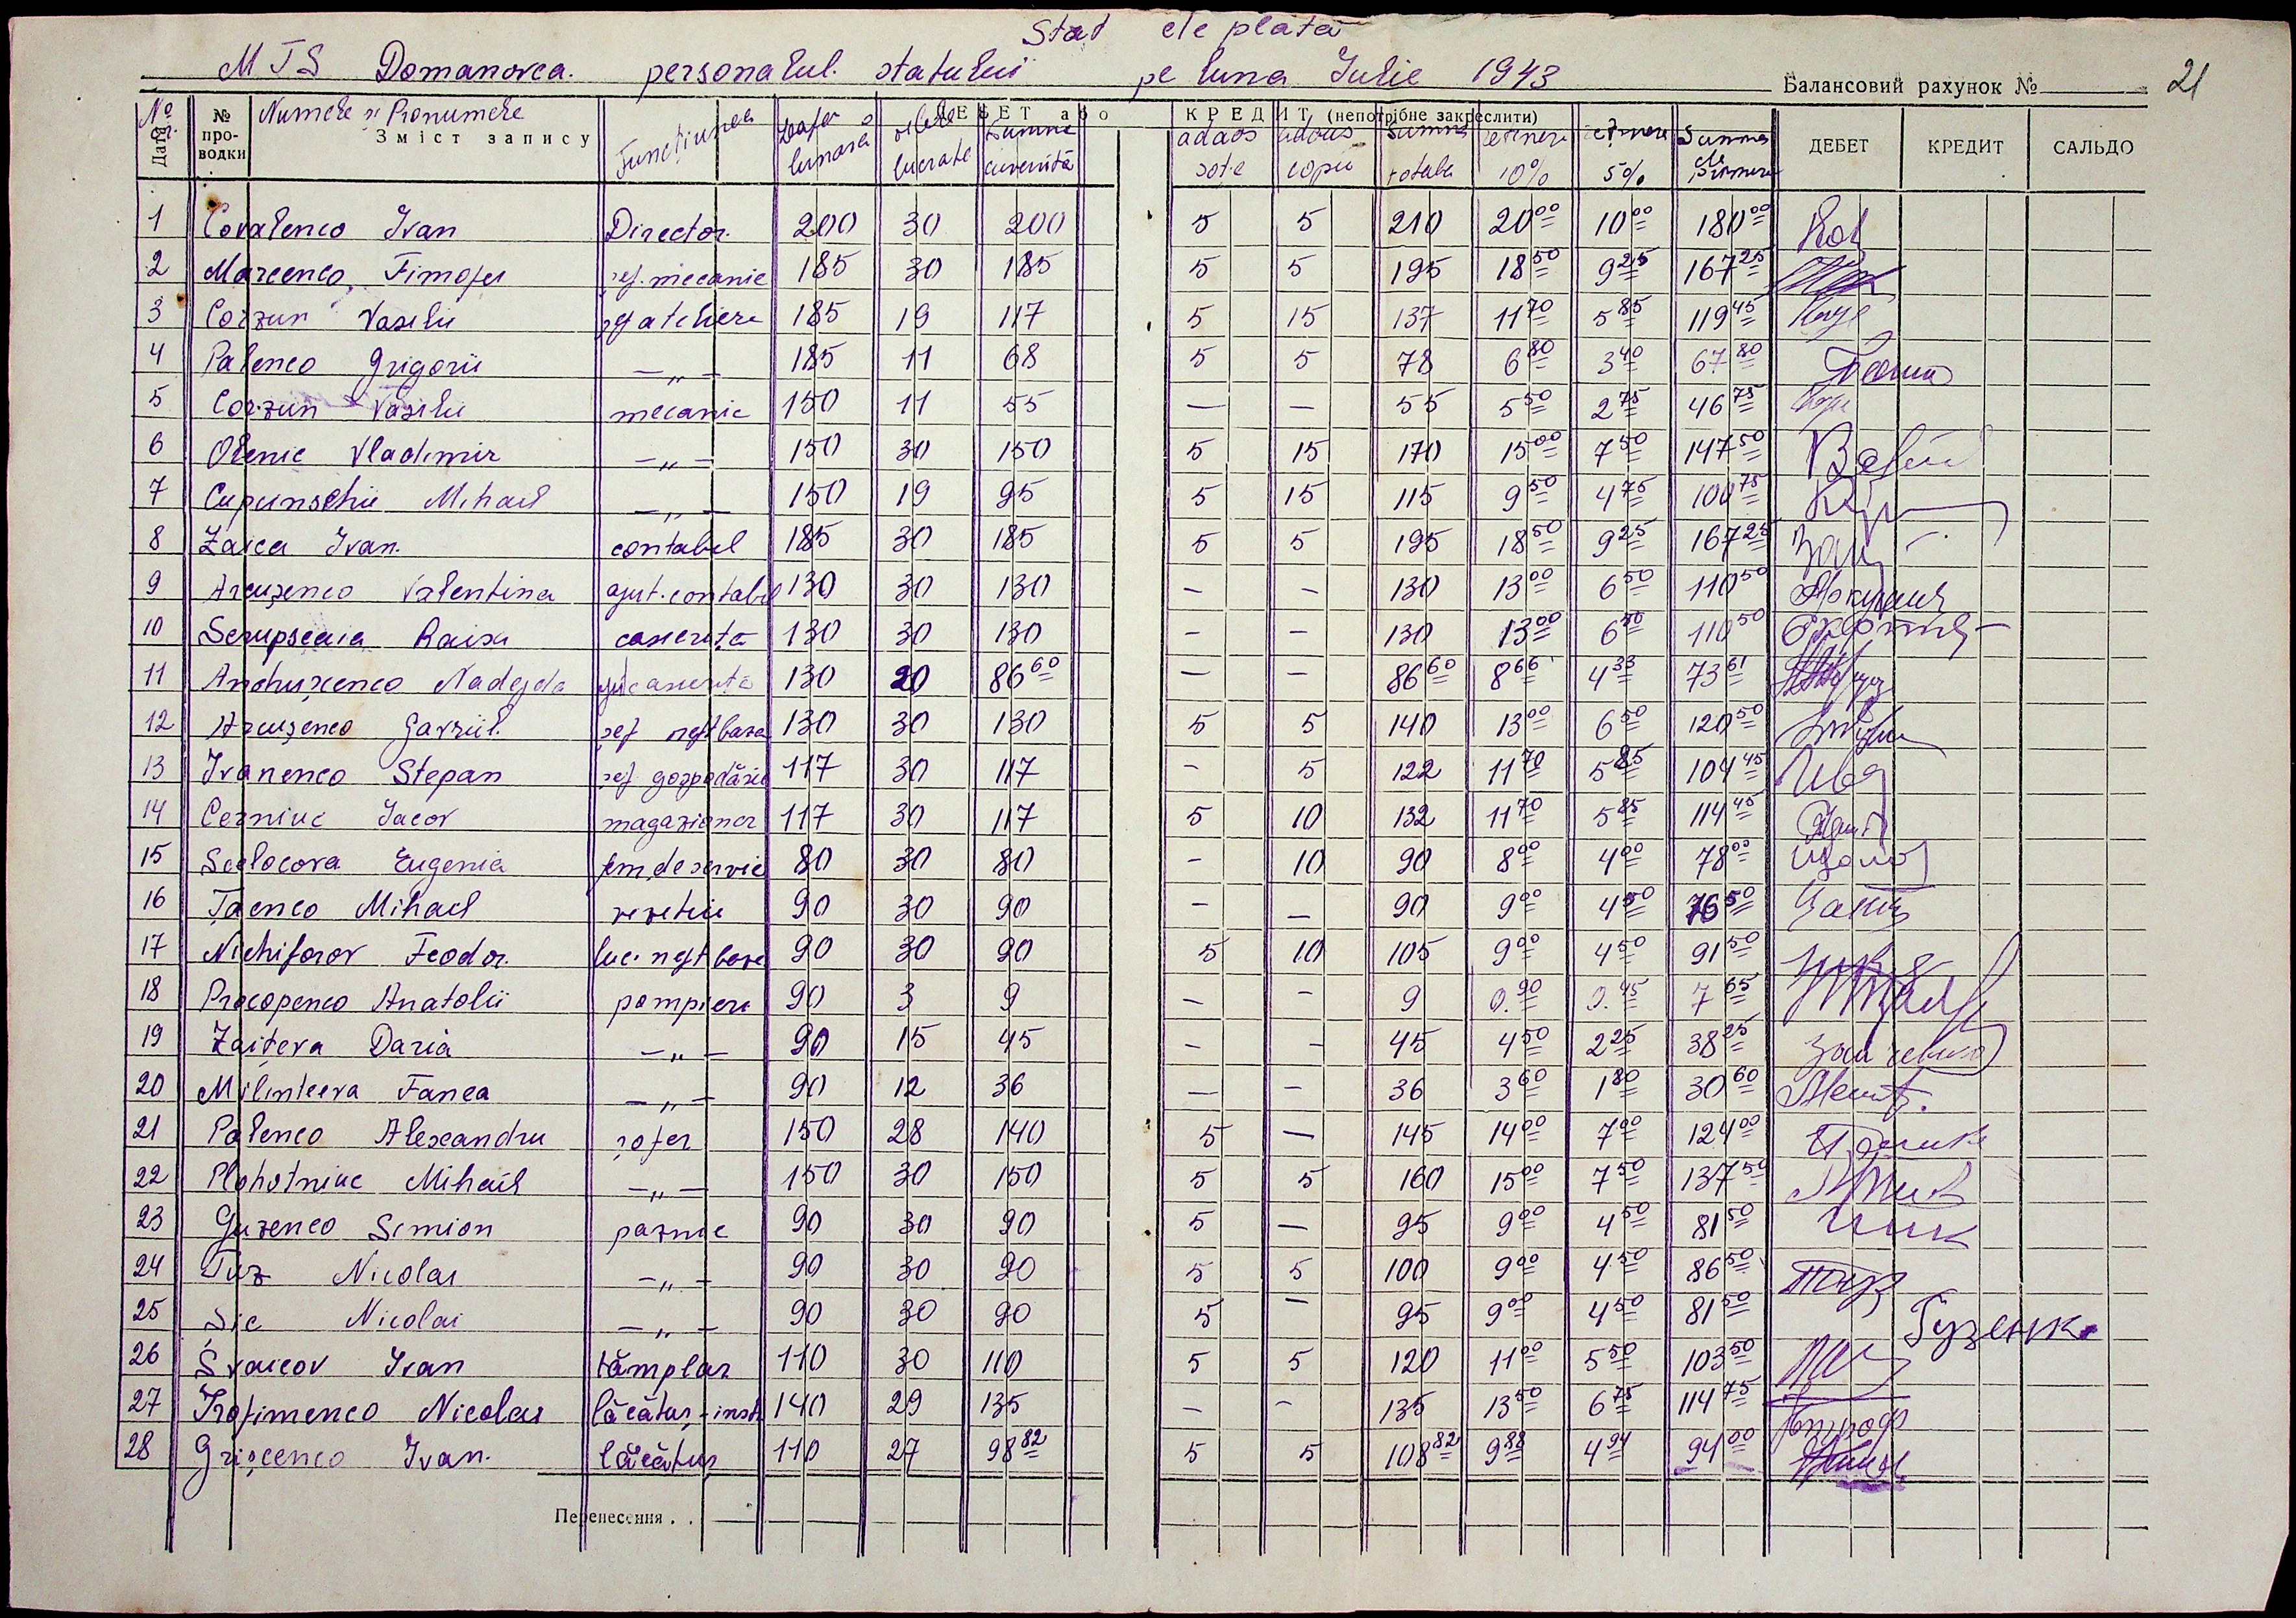 Stat de plată
MTS Domanovca. personalul. statului pe luna Iulie 1943 Балансовий рахунок № 21
№ Дата № про-водки Numele și Pronumele Зміст запису Funcțiunea Leafa lunară zilele lucrate ДЕБЕТ або Suma cuvenită КРЕДИТ (непотрібне закреслити) adaos soție adaos copii Suma totală rețineri 10% rețineri 5% Suma de primire ДЕБЕТ КРЕДИТ САЛЬДО
1 Covalenco Ivan Director. 200 30 200 5 5 210 20 00 10 00 180 00
2 Marcenco, Timofei șef. mecanic 185 30 185 5 5 195 18 50 9 25 167 25
3 Corzun Vasilii șef ateliere 185 19 117 5 15 137 11 70 5 85 119 45
4 Palenco Grigorii — „ — 185 11 68 5 5 78 6 80 3 40 67 80
5 Corzun Vasilii mecanic 150 11 55 — — 55 5 50 2 75 46 75
6 Olenic Vladimir — „ — 150 30 150 5 15 170 15 00 7 50 147 50
7 Cupunschii Mihail — „ — 150 19 95 5 15 115 9 50 4 75 100 75
8 Zaica Ivan. contabil 185 30 185 5 5 195 18 50 9 25 167 25
9 Arcușenco Valentina ajut. contabil 130 30 130 — — 130 13 00 6 50 110 50
10 Scrupscaia Raisa casieriță 130 30 130 — — 130 13 00 6 50 110 50
11 Andrușcenco Nadejda ajut casieriță 130 20 86 60 — — 86 60 8 66 4 33 73 61
12 Arcușenco Gavriil. șef neftbaza 130 30 130 5 5 140 13 00 6 50 120 50
13 Ivanenco Stepan șef gozpodărie 117 30 117 — 5 122 11 70 5 85 104 45
14 Cerniuc Iacov magazioner 117 30 117 5 10 132 11 70 5 85 114 45
15 Scolocova Eugenia fem. de servic 80 30 80 — 10 90 8 00 4 00 78 00
16 Țaenco Mihail 90 30 90 — — 90 9 00 4 50 76 50
17 Nichiforov Feodor. luc. neft baza 90 30 90 5 10 105 9 00 4 50 91 50
18 Procopenco Anatolii pompieri 90 3 9 — — 9 0. 90 0. 45 7 65
19 Zaițeva Daria — „ — 90 15 45 — — 45 4 50 2 25 38 25
20 Milinteeva Fanea — „ — 90 12 36 — — 36 3 60 1 80 30 60
21 Palenco Alexandru șofer 150 28 140 5 — 145 14 00 7 00 124 00
22 Plohotniuc Mihail — „ — 150 30 150 5 5 160 15 00 7 50 137 50
23 Guzenco Simion paznic 90 30 90 5 — 95 9 00 4 50 81 50
24 Tuz Nicolai — „ — 90 30 90 5 5 100 9 00 4 50 86 50
25 Sic Nicolai — „ — 90 30 90 5 — 95 9 00 4 50 81 50 Гузенко
26 Svaicov Ivan tâmplar 110 30 110 5 5 120 11 00 5 50 103 50
27 Trofimenco Nicolai lăcătuș - instr 140 29 135 — — 135 13 50 6 75 114 75
28 Grișcenco Ivan. lăcătuș 110 27 98 82 5 5 108 82 9 88 4 94 94 00
Перенесення . .